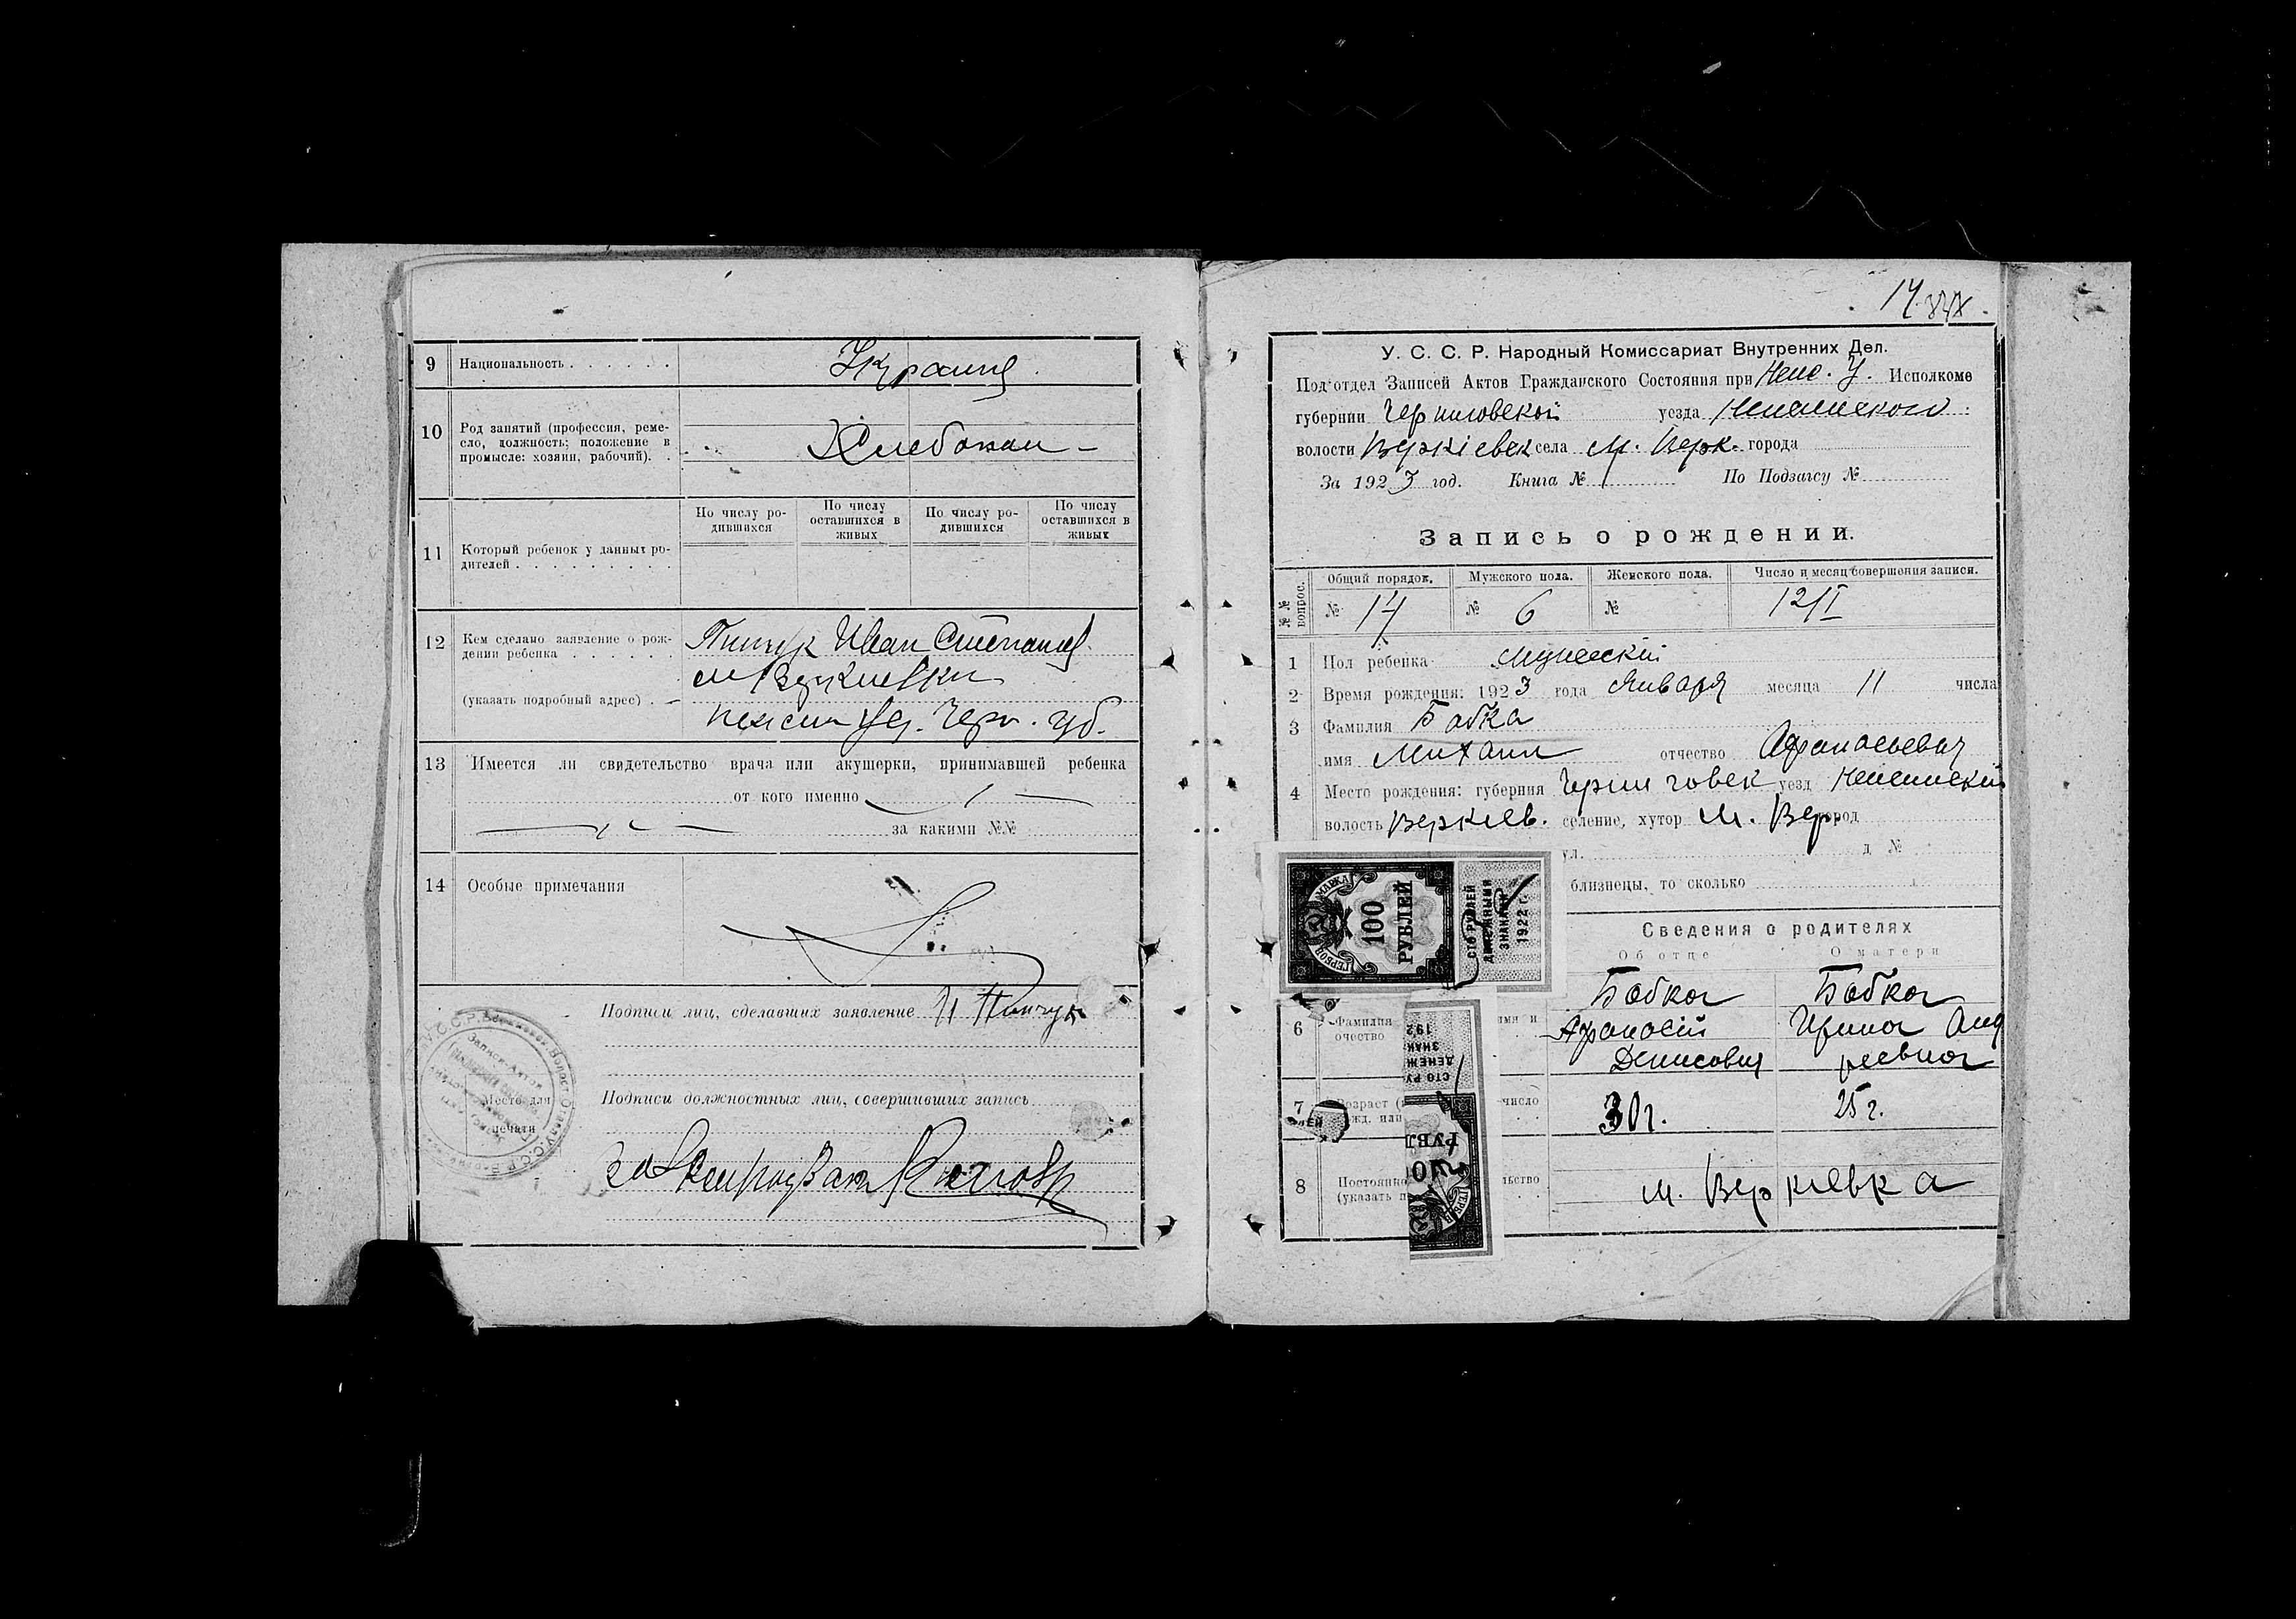 9 Национальность . . . . . . Украинц.
10 Род занятий (профессия, реме-
сло, должность; положение в
промысле: хозяин, рабочий). .
Хлебопаш –
По числу ро-
дившихся
По числу
оставшихся в
живых
По числу ро-
дившихся
По числу
оставшихся в
живых
11 Который ребенок у данных ро-
дителей . . . . . . . . .
12 Кем сделано заявление о рож-
дении ребенка . . . . . .
(указать подробный адрес) . –
Пинчук Иван Степанов.
м Веркиевки
Нежин уез. Черн. губ.
13 Имеется ли свидетельство врача или акушерки, принимавшей ребенка
от кого именно
за какими №№
14 Особые примечания
Подписи лиц, сделавших заявление И Пинчук
Подписи должностных лиц, совершивших запись
Место для
печати
14
У. С. С. Р. Народный Комиссариат Внутренних Дел.
Подотдел Записей Актов Гражданского Состояния при Неж. У. Исполкоме
губернии Черниговской уезда Нежинского
волости Веркіевск села м. Верк. города
За 1923 год. Книга № 1 По Подзагсу №
Запись о рождении.
№№ вопрос.
Общий порядок. Мужского пола. Женского пола. Число и месяц совершения записи.
№ 14 № 6 № 12/I
1 Пол ребенка Мужескій
2 Время рождения: 1923 года Января месяца 11 числа
3 Фамилия Бобка
имя Михаил отчество Афанасьевич
4 Место рождения: губерния Черниговск уезд Нежинский
волость Веркиев. селение, хутор м. Вер. город
ул. д №
близнецы, то сколько
ГЕРБОВАЯ МАРКА
100
РУБЛЕЙ
СТО РУБЛЕЙ
ДЕНЕЖНЫМИ
ЗНАКАМИ
1922 г.
Сведения о родителях
Об отце О матери
6 Фамилия имя и
очество
Бобка
Афанасій
Денисович
Бобка
Ирина Анд
реевна
СТО РУ
ДЕНЕЖ
ЗНАК
192
7 Возраст ( число
жд. или
30 г. 25 г.
РУБЛ
8 Постоянно льство
(указать п
м. Веркиевка